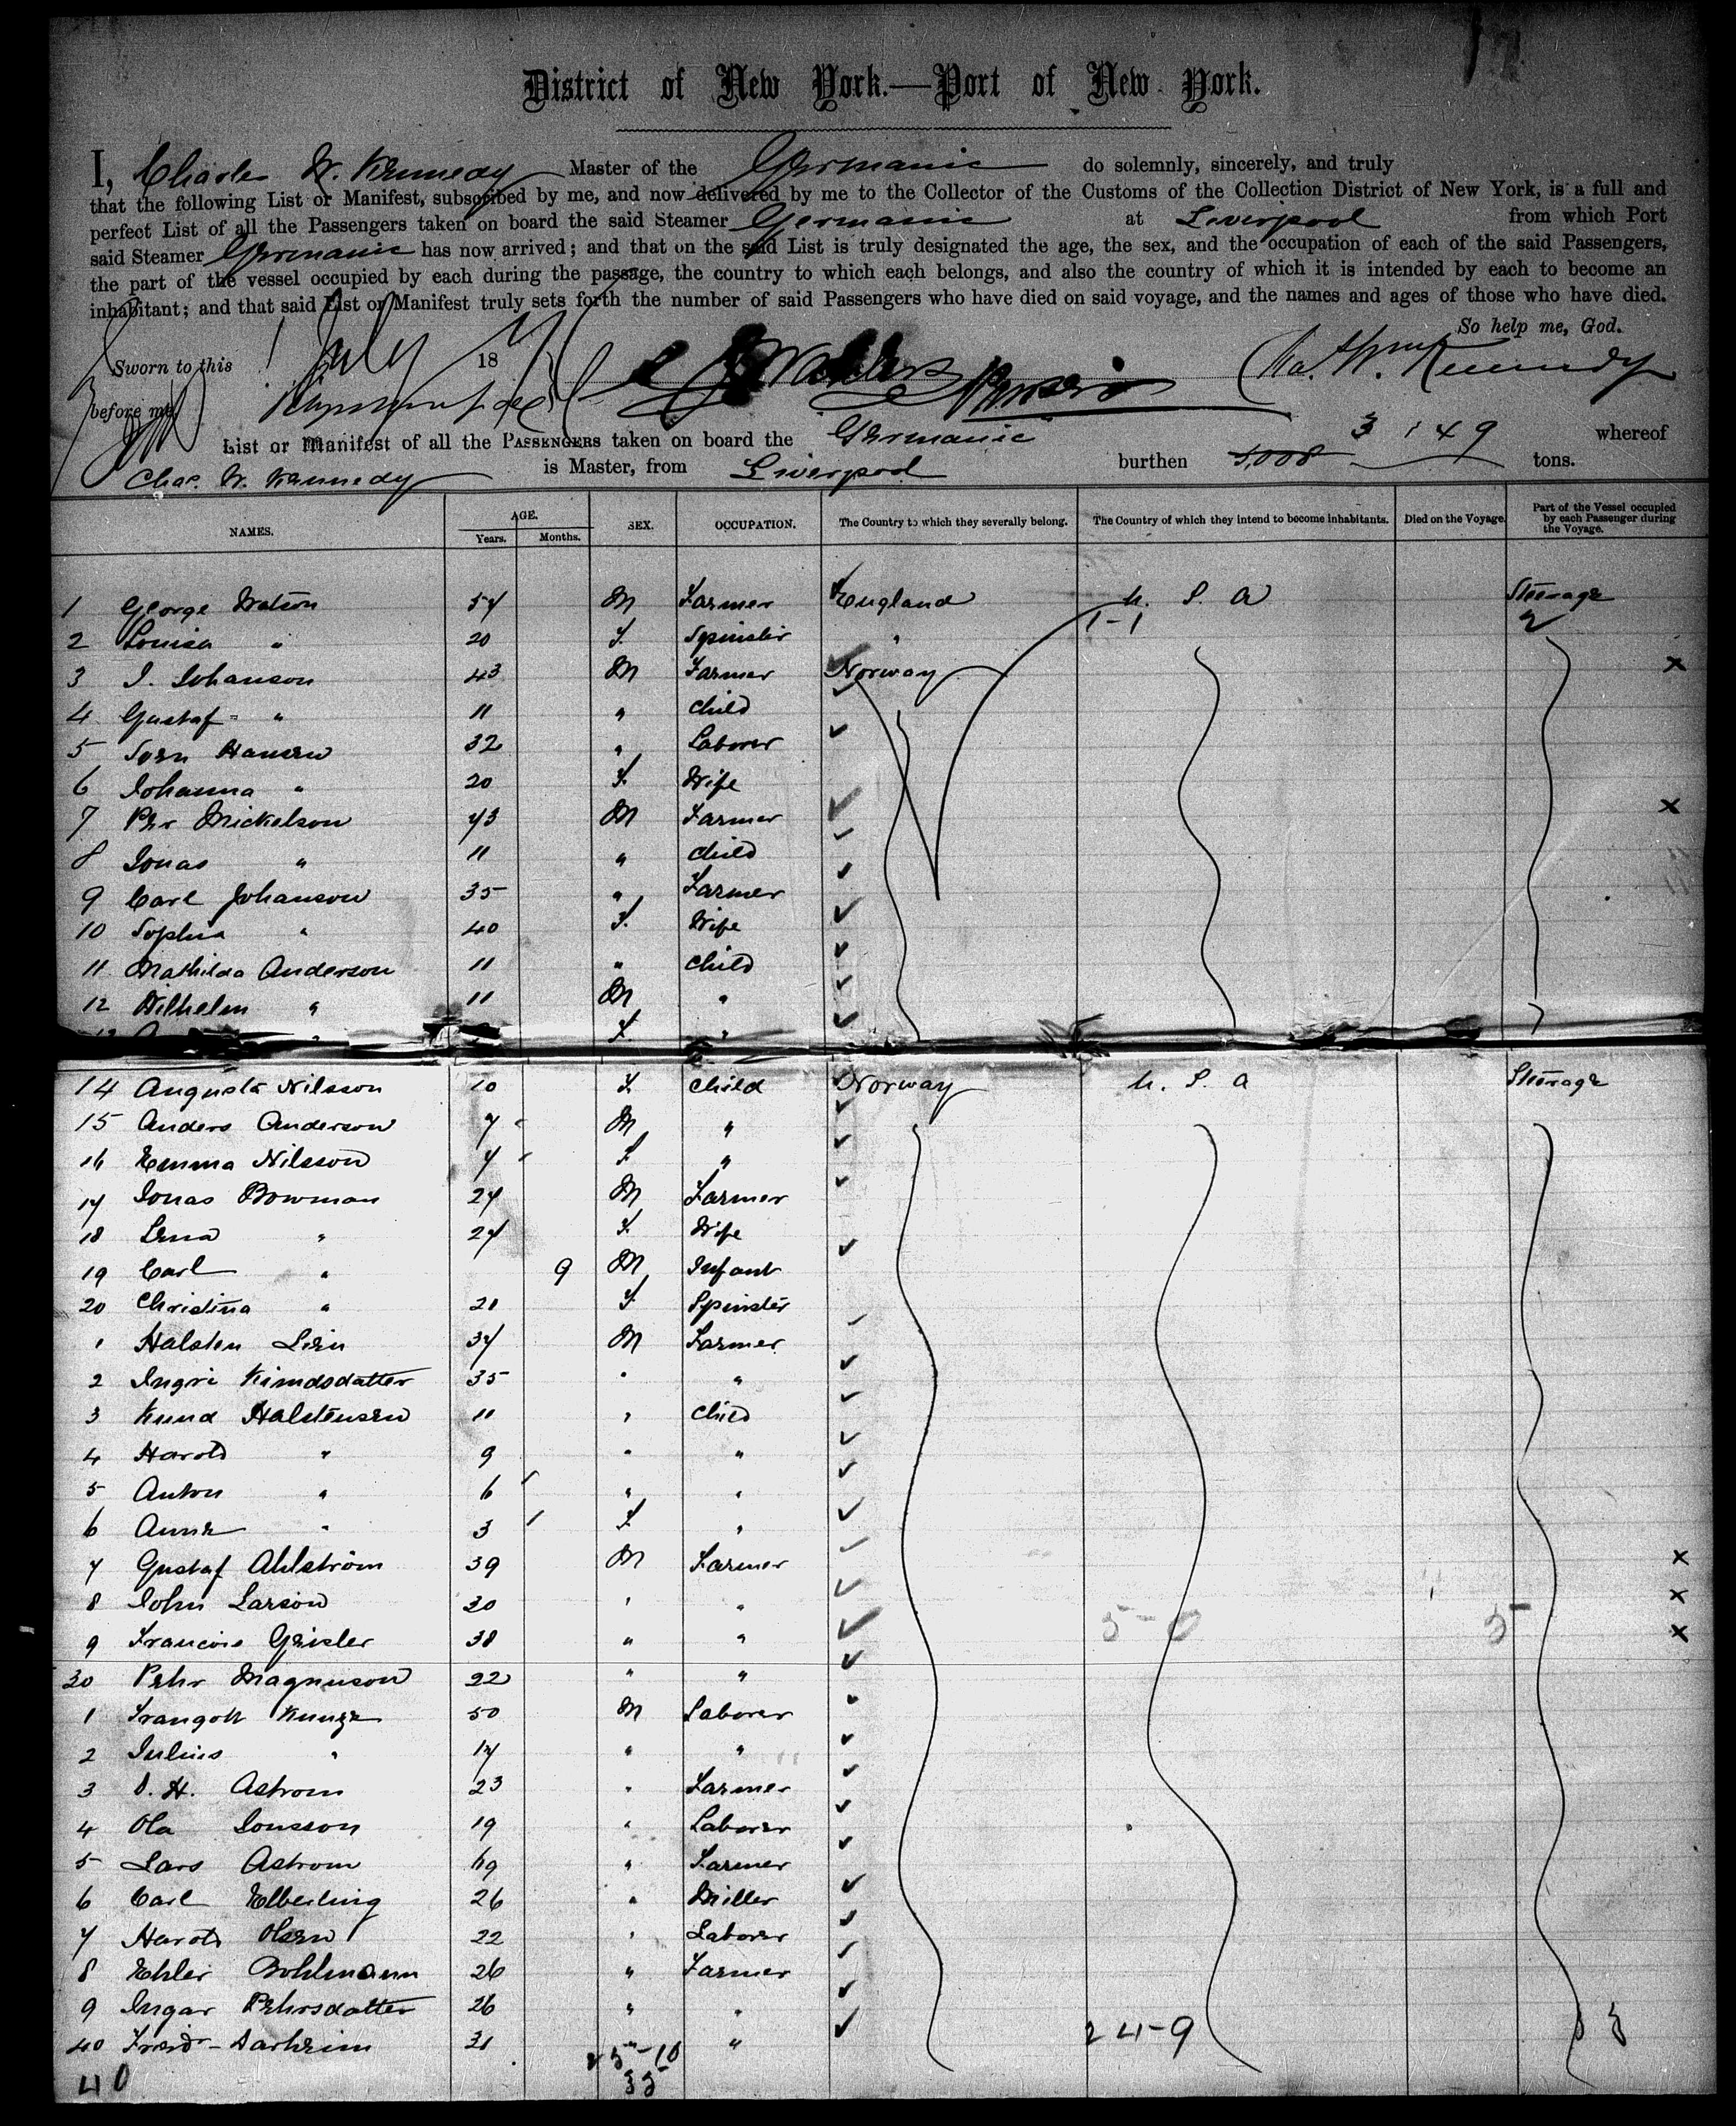 District of New York.—Port of New York.
I, Charles W. Kennedy Master of the Germanic do solemnly, sincerely, and truly
that the following List or Manifest, subscribed by me, and now delivered by me to the Collector of the Customs of the Collection District of New York, is a full and
perfect List of all the Passengers taken on board the said Steamer Germanic at Liverpool from which Port
said Steamer Germanic has now arrived; and that on the said List is truly designated the age, the sex, and the occupation of each of the said Passengers,
the part of the vessel occupied by each during the passage, the country to which each belongs, and also the country of which it is intended by each to become an
inhabitant; and that said List or Manifest truly sets forth the number of said Passengers who have died on said voyage, and the names and ages of those who have died.
So help me, God.
Sworn to this July 18
before me Chas. W. Kennedy
List or Manifest of all the PASSENGERS taken on board the Germanic whereof
Chas. W. Kennedy is Master, from Liverpool burthen 5,008 3149 tons.
NAMES. AGE. Years. Months. SEX. OCCUPATION. The Country to which they severally belong. The Country of which they intend to become inhabitants. Died on the Voyage. Part of the Vessel occupied by each Passenger during the Voyage.
1 George Watson 54 M Farmer England U. S. A Steerage
2 Louisa " 20 F. Spinster " 1-1 2
3 I. Johanson 43 M Farmer Norway x
4 Gustaf " 11 " Child
5 Sorn Hansen 32 " Laborer
6 Johanna " 20 F. Wife
7 Per Mickelson 43 M Farmer x
8 Jonas " 11 " Child
9 Carl Johanson 35 " Farmer
10 Sophia " 40 F. Wife
11 Mathilda Anderson 11 " Child
12 Wilhelm " 11 M "
13 " F. "
14 Augusta Nilsson 10 F. Child Norway U. S. A Steerage
15 Anders Anderson 7 M "
16 Emma Nilsson 4 F "
17 Jonas Bowman 24 M Farmer
18 Lena " 24 F. Wife
19 Carl " 9 M Infant
20 Christina " 21 F. Spinster
1 Halsten Lien 34 M Farmer
2 Ingri Kimdsdatter 35 " "
3 Knud Halstensen 11 " Child
4 Harold " 9 " "
5 Anton " 6 " "
6 Anne " 3 F "
7 Gustaf Ahlström 39 M Farmer x
8 John Larson 30 " " x
9 Francois Geisler 38 " " 5-0 5 x
30 Pehr Magnuson 22 " "
1 Traugott Kunze 50 M Laborer
2 Julius " 17 " "
3 O. H. Astrom 23 " Farmer
4 Ola Jonsson 19 " Laborer
5 Lars Astrom 69 " Farmer
6 Carl Elberling 26 " Miller
7 Harold Olsen 22 " Laborer
8 Ehler Bohlmann 26 " Farmer
9 Ingar Pehrsdatter 26 " "
40 31 " " 24-9
40 25-10
35